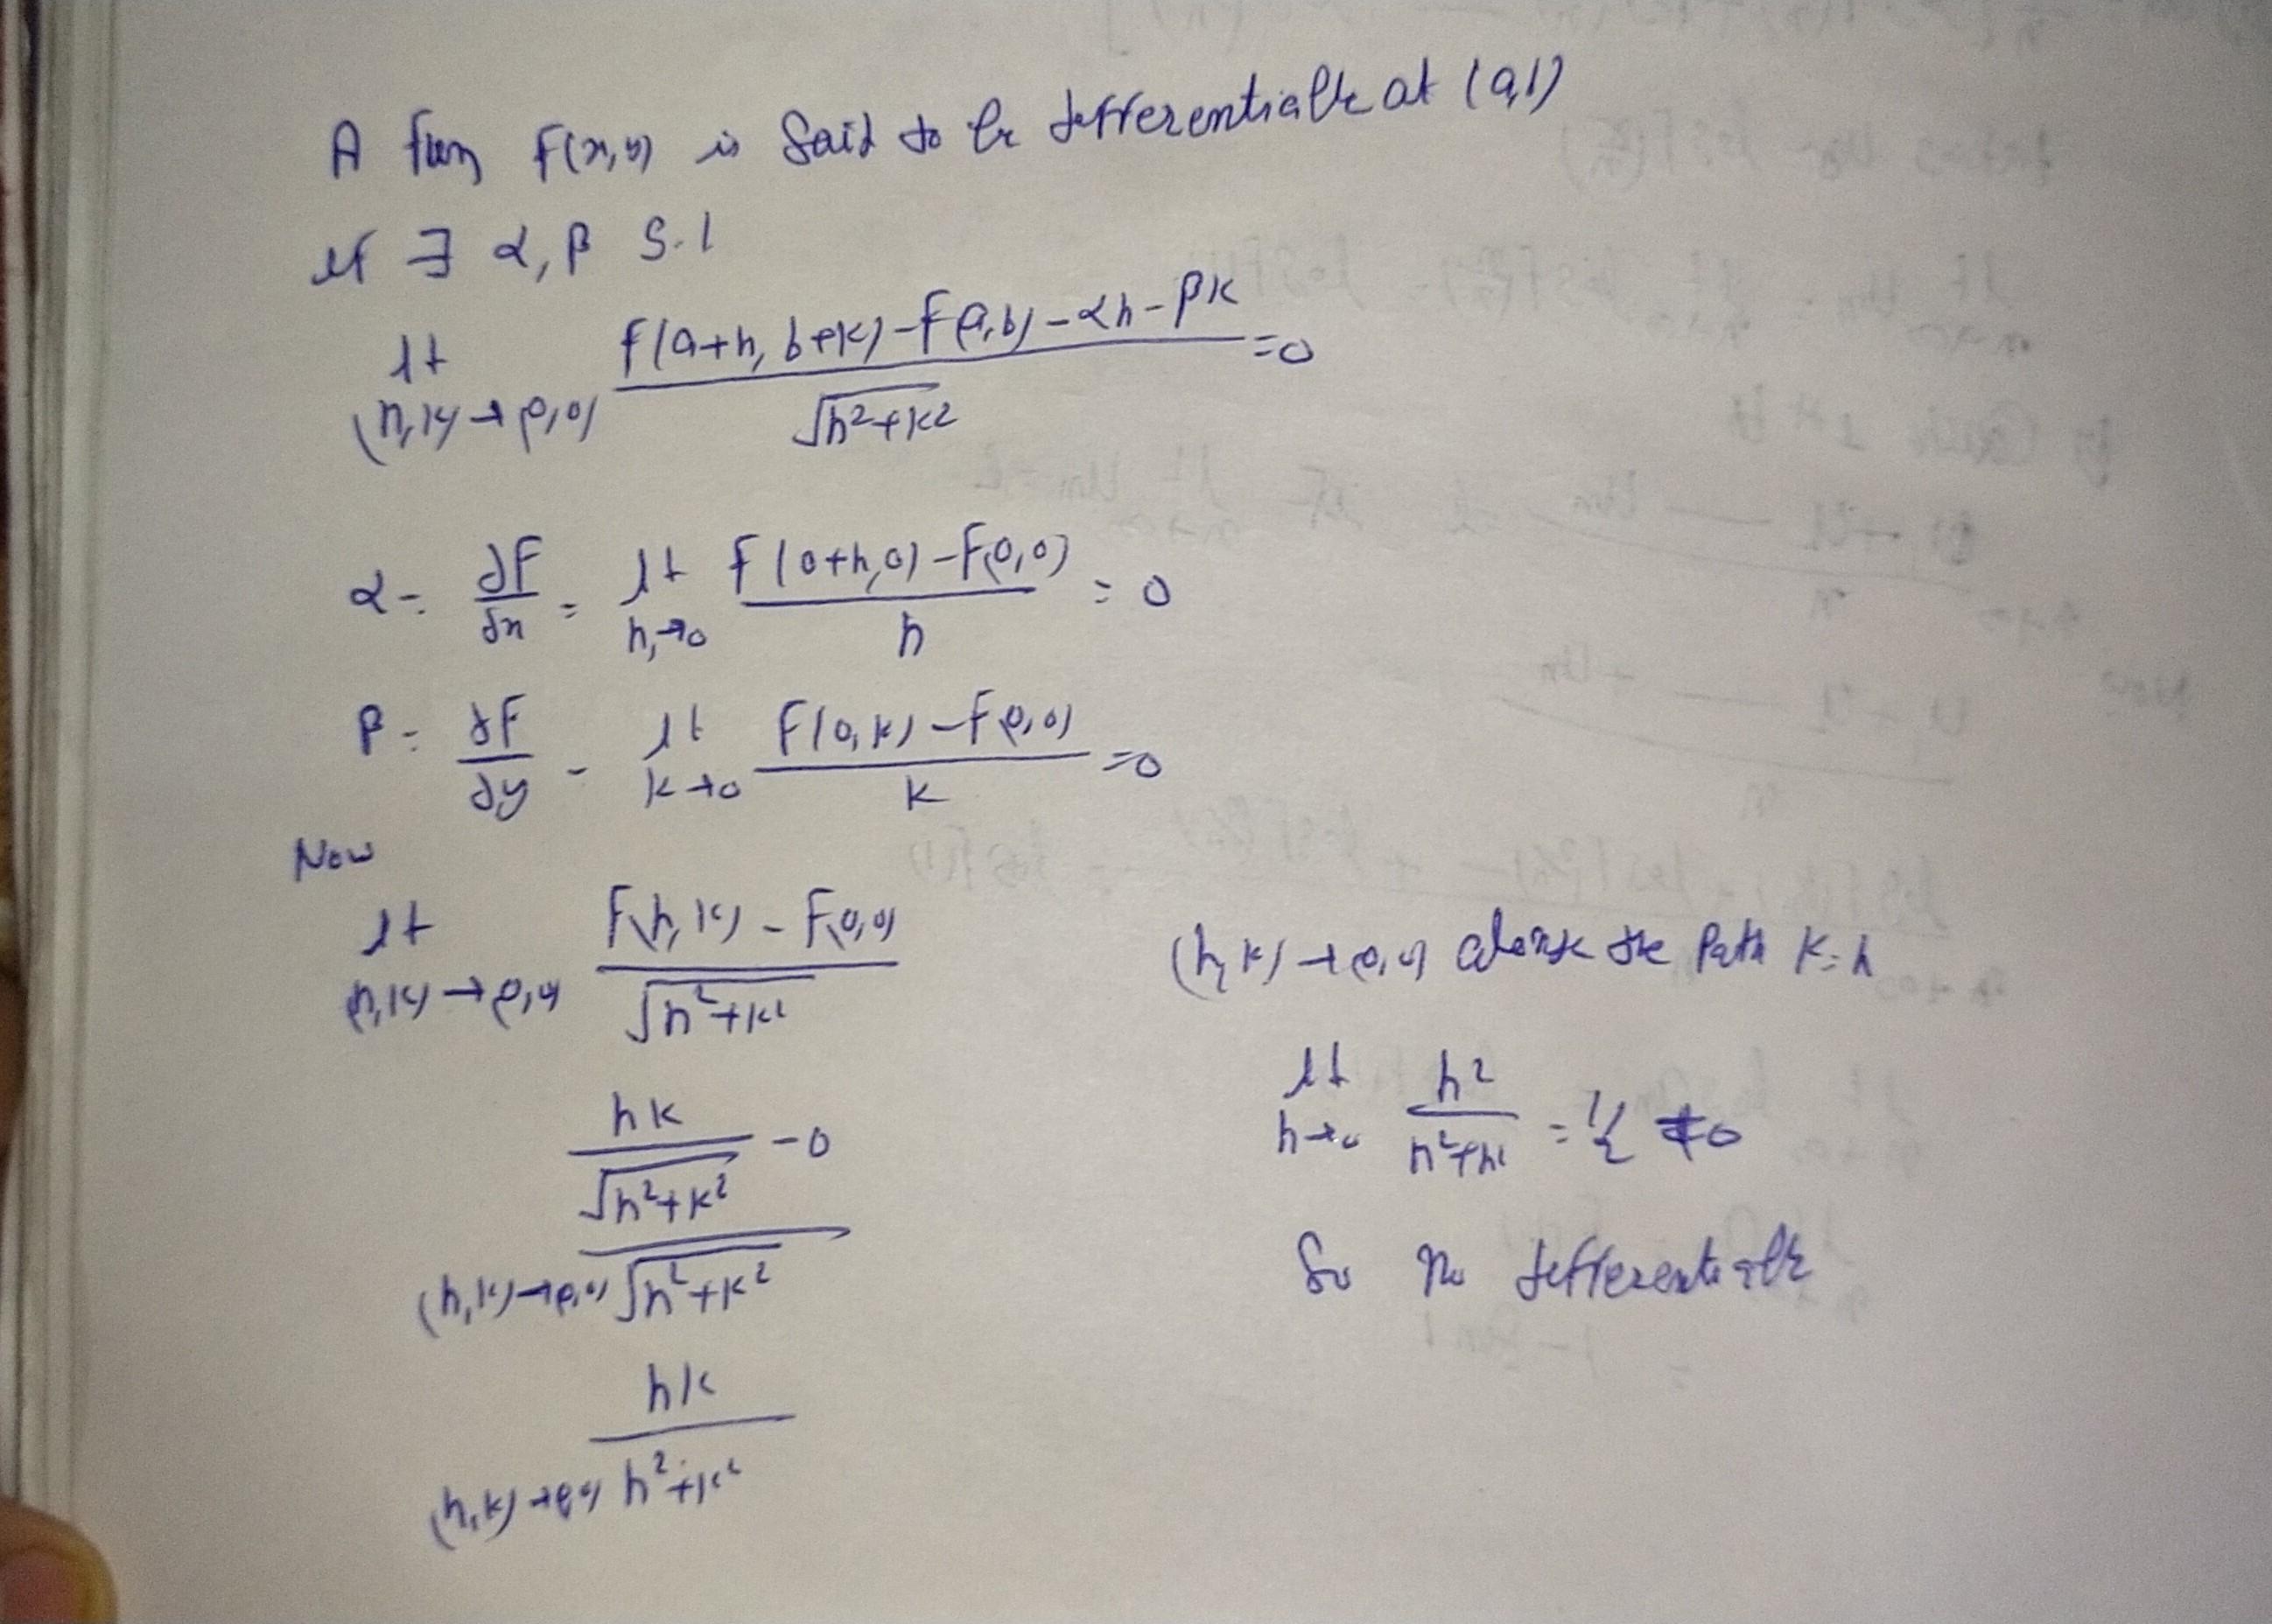 A fun f(x,y) is said to be differentiable at (a,b)
if ∃ α, β s.t
lt (h,k)→(0,0) f(a+h, b+k) - f(a,b) - αh - βk / √h²+k² = 0
α = ∂f/∂x = lt h→0 f(0+h,0) - f(0,0) / h = 0
β = ∂f/∂y = lt k→0 f(0,k) - f(0,0) / k = 0
Now
lt (h,k)→(0,0) f(h,k) - f(0,0) / √h²+k²
hk / √h²+k² - 0
(h,k)→(0,0) √h²+k²
hk
(h,k)→(0,0) h²+k²
(h,k)→(0,0) along the path k=h
lt h→0 h² / h²+h² = 1/2 ≠ 0
So no differentiable